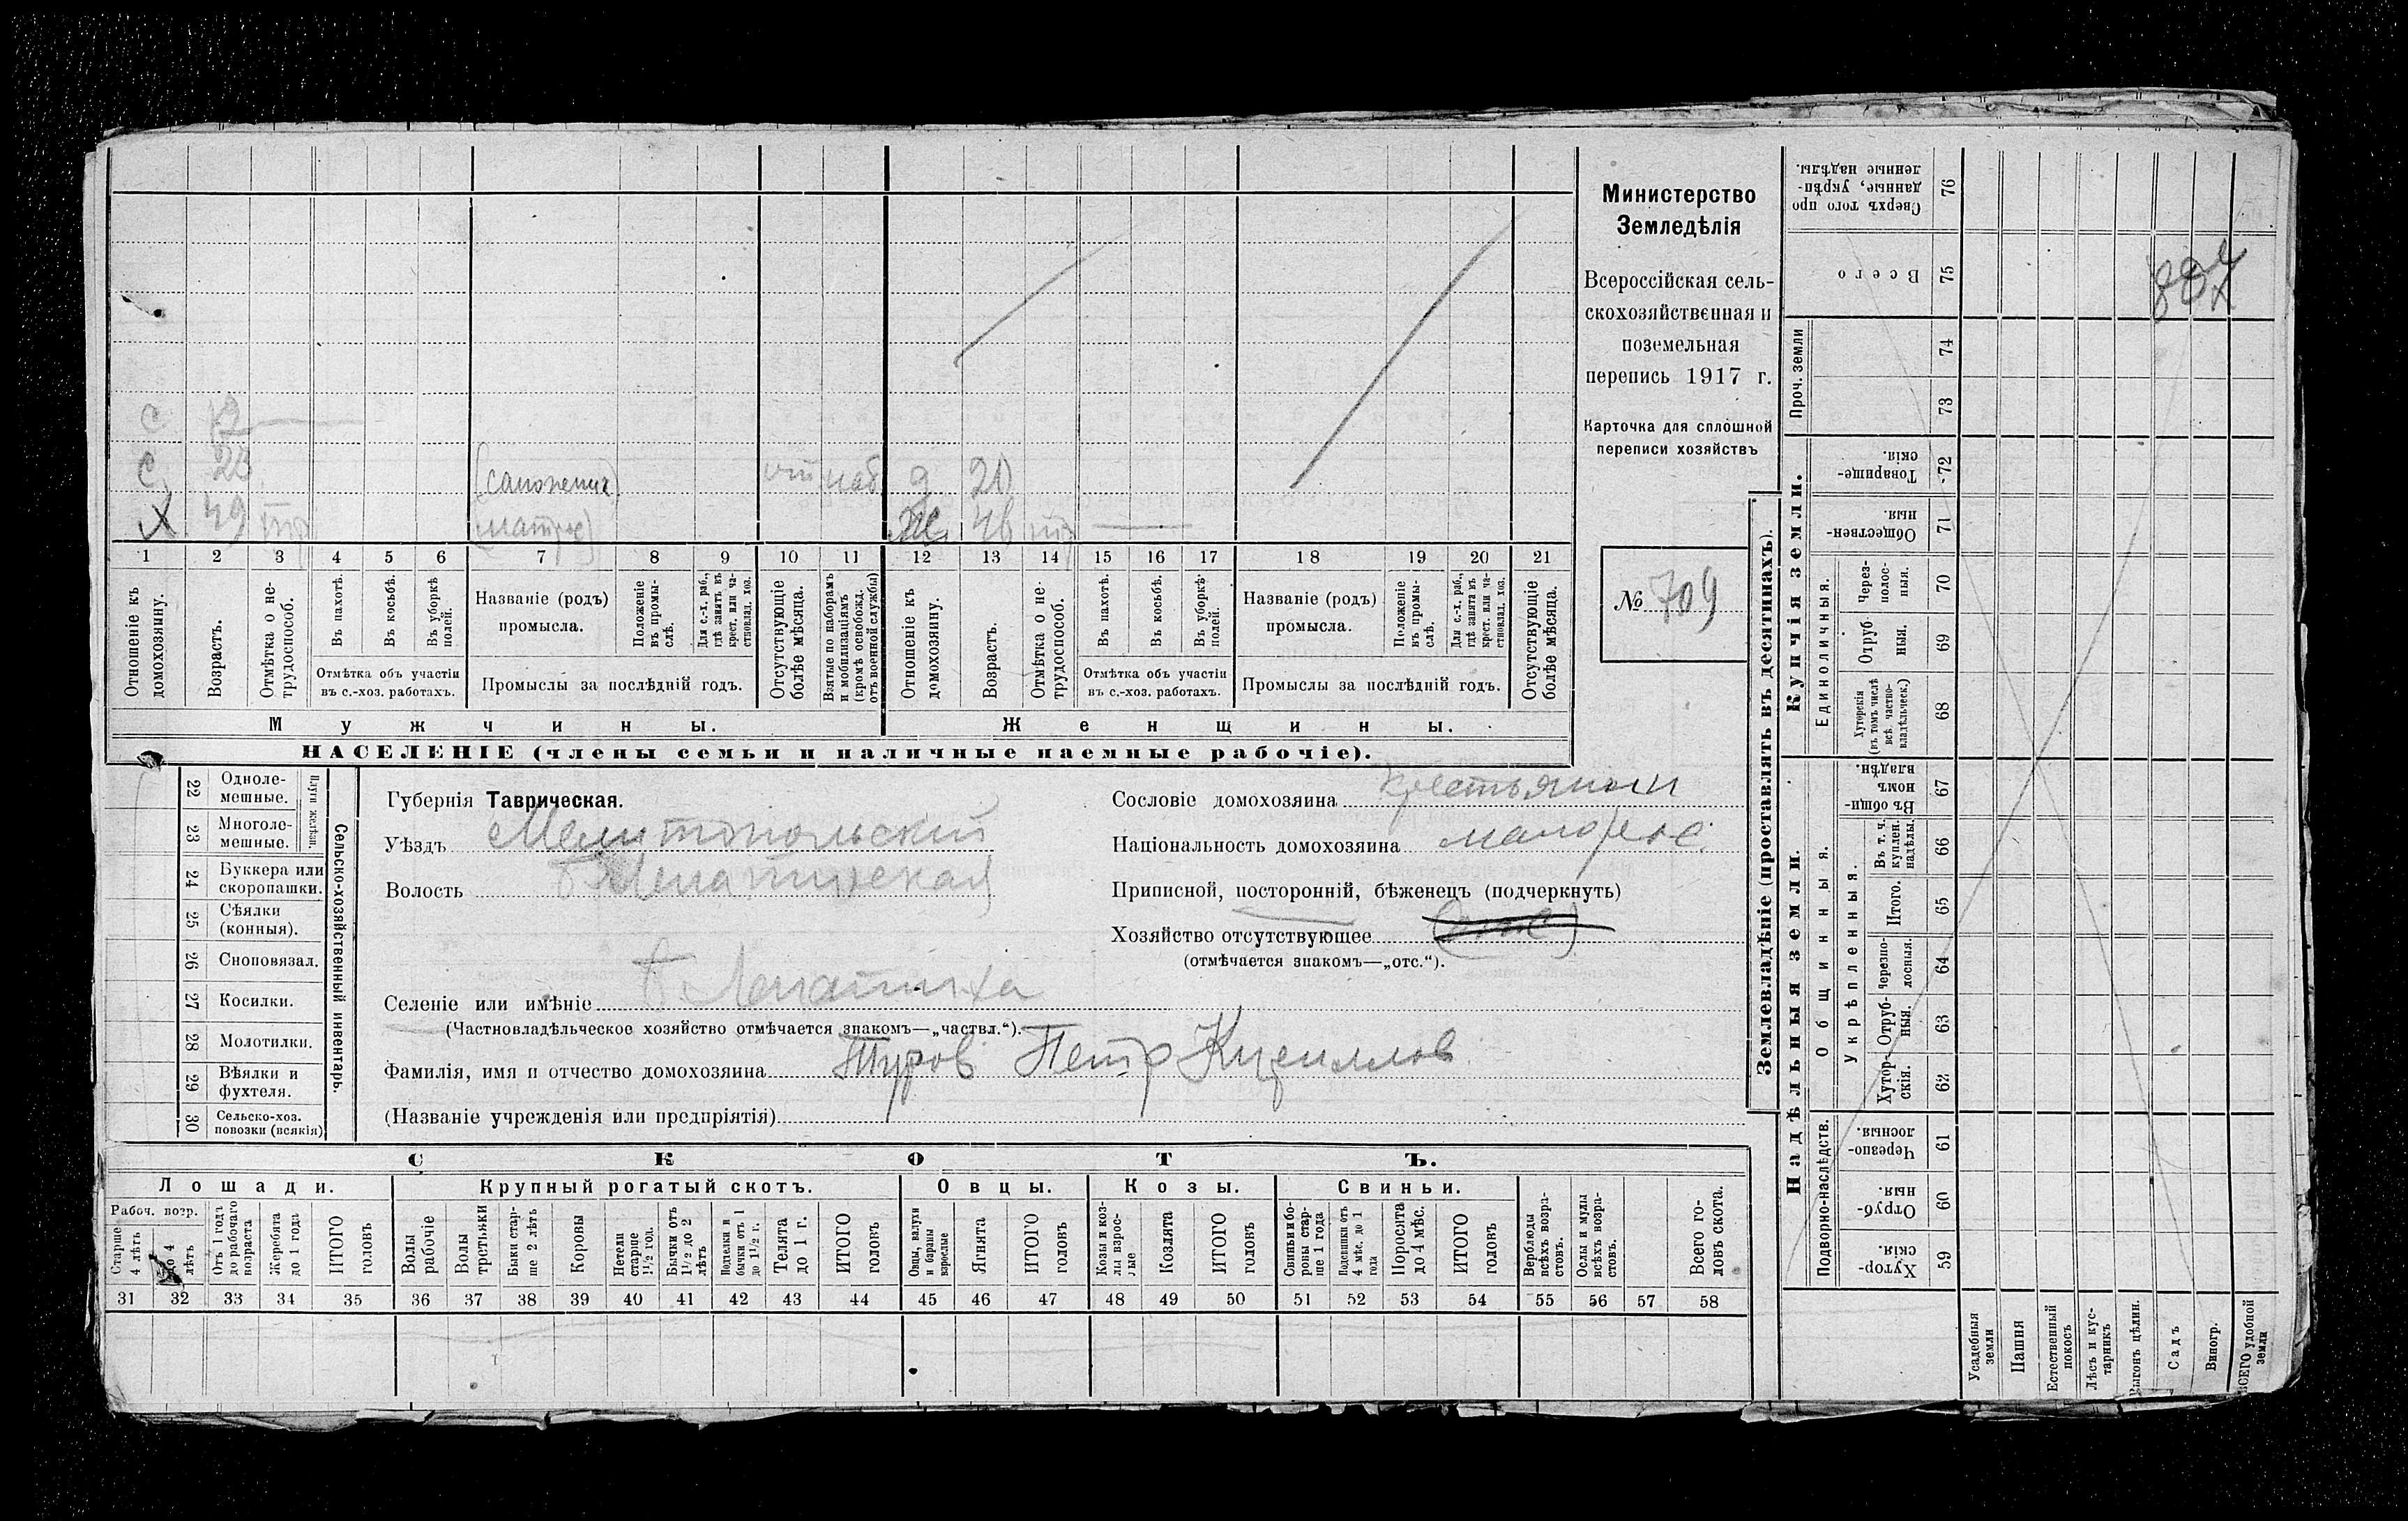 Министерство
Земледѣлія
Всероссійская сель-
скохозяйственная и
поземельная
перепись 1917 г.
Карточка для сплошной
переписи хозяйствъ
№ 709
с 12
с 23 (сапожник) наб д 20
Х 49 тр (матрос) Ж 46 тр
1 2 3 4 5 6 7 8 9 10 11 12 13 14 15 16 17 18 19 20 21
Отношеніе къ домохозяину.
Возрастъ.
Отмѣтка о не-трудоспособ.
Въ пахотѣ.
Въ косьбѣ.
Въ уборкѣ полей.
Отмѣтка объ участіи
въ с.-хоз. работахъ.
Названіе (родъ)
промысла.
Положеніе въ промы-слѣ.
Для с.-х. раб., гдѣ занятъ въ крест. или ча-стновлад. хоз.
Промыслы за послѣдній годъ.
Отсутствующіе болѣе мѣсяца.
Взятые по наборамъ и мобилизаціямъ (кромѣ освобожд. отъ военной службы)
Отношеніе къ домохозяину.
Возрастъ.
Отмѣтка о не-трудоспособ.
Въ пахотѣ.
Въ косьбѣ.
Въ уборкѣ полей.
Отмѣтка объ участіи
въ с.-хоз. работахъ.
Названіе (родъ)
промысла.
Положеніе въ промы-слѣ.
Для с.-х. раб., гдѣ занята въ крест. или ча-стновлад. хоз.
Промыслы за послѣдній годъ.
Отсутствующіе болѣе мѣсяца.
Мужчины. Женщины.
НАСЕЛЕНІЕ (члены семьи и наличные наемные рабочіе).
Сельско-хозяйственный инвентарь.
Плуги желѣзн.
22 Одноле-мешные.
23 Многоле-мешные.
24 Буккера или скоропашки.
25 Сѣялки (конныя).
26 Сноповязал.
27 Косилки.
28 Молотилки.
29 Вѣялки и фухтеля.
30 Сельско-хоз. повозки (всякія)
Губернія Таврическая.
Уѣздъ Мелитопольскій
Волость Б Лепатихская
Сословіе домохозяина крестьянин
Національность домохозяина малорос.
Приписной, посторонній, бѣженецъ (подчеркнуть)
Хозяйство отсутствующее
(отмѣчается знакомъ—„отс.“).
Селеніе или имѣніе Б. Лепатиха
(Частновладѣльческое хозяйство отмѣчается знакомъ—„частвл.“).
Фамилія, имя и отчество домохозяина Туров Петр Кириллов
(Названіе учрежденія или предпріятія)
СКОТЪ.
Лошади. Крупный рогатый скотъ. Овцы. Козы. Свиньи.
Рабоч. возр.
Старше 4 лѣтъ
до 4 лѣтъ
Отъ 1 годъ до рабочаго возраста
Жеребята до 1 года
ИТОГО головъ
Волы рабочіе
Волы третьяки
Быки стар-ше 2 лѣтъ
Коровы
Нетели старше 1½ год.
Бычки отъ 1½ до 2 лѣтъ
Подтелки и бычки отъ 1 до 1½ г.
Телята до 1 г.
ИТОГО головъ
Овцы, валухи и бараны взрослые
Ягнята
ИТОГО головъ
Козы и коз-лы взрос-лые
Козлята
ИТОГО головъ
Свиньи и бо-ровы стар-ше 1 года
Подсвинки отъ 4 мѣс. до 1 года
Поросята до 4 мѣс.
ИТОГО головъ
Верблюды всѣхъ возра-стовъ.
Ослы и мулы всѣхъ возра-стовъ.
Всего го-ловъ скота.
31 32 33 34 35 36 37 38 39 40 41 42 43 44 45 46 47 48 49 50 51 52 53 54 55 56 57 58
Землевладѣніе (проставлять въ десятинахъ).
Надѣльныя земли. Купчія земли.
Подворно-наслѣдств.
Общинныя.
Укрѣпленныя.
Единоличныя.
Проч. земли
Хутор-скія. 59
Отруб-ныя. 60
Черезпо-лосныя. 61
Хутор-скія. 62
Отруб-ныя. 63
Черезпо-лосныя. 64
Итого. 65
Въ т. ч. куплен. надѣлы. 66
Въ общи-номъ владѣн. 67
Хуторскія (въ томъ числѣ всѣ частно-владѣльческ.) 68
Отруб ныя. 69
Через-полос-ныя. 70
Обществен-ныя. 71
Товарище-скія. 72
73
74
Всего 75
Сверхъ того про данные, укрѣп-ленные надѣлы. 76
Усадебныя земли
Пашня
Естественный покосъ
Лѣсъ и кус-тарникъ
Выгонъ цѣлин.
Садъ
Виногр.
ВСЕГО удобной земли